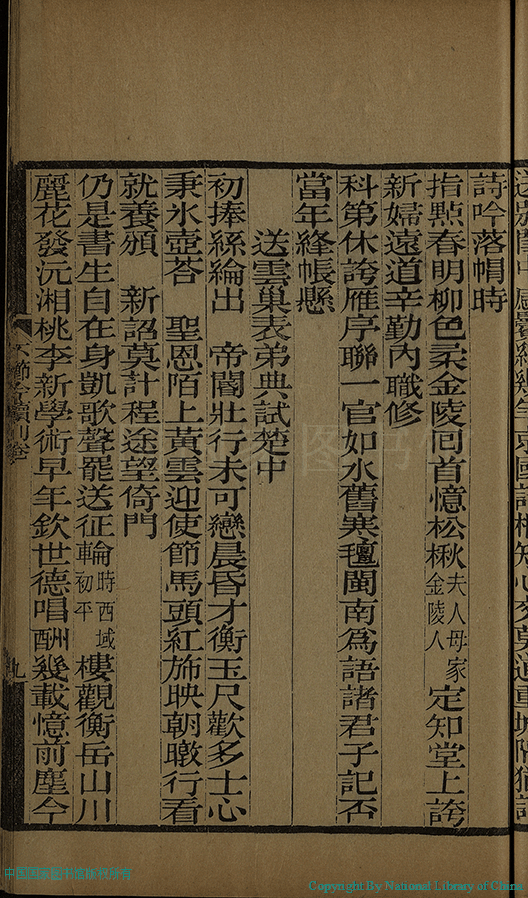 詩吟落帽時
指點春明柳色柔金陵回首憶松楸夫人母家金陵人定知堂上誇
新婦遠道辛勤內職修
科第休誇雁序聯一官如水舊寒氊閩南為語諸君子記否
當年絳帳懸
送雲巢表弟典試楚中
初捧絲綸出　帝閽壯行未可戀晨昏才衡玉尺歡多士心
秉冰壺荅　聖恩陌上黃雲迎使節馬頭紅斾映朝暾行看
就養頒　新詔莫計程途望倚門
仍是書生自在身凱歌聲罷送征輪時西域車初平樓觀衡岳山川
麗花發沅湘桃李新學術早年欽世德唱酬幾載憶前塵今
九
中国国家图书馆版权所有
Copyright By National Library of China